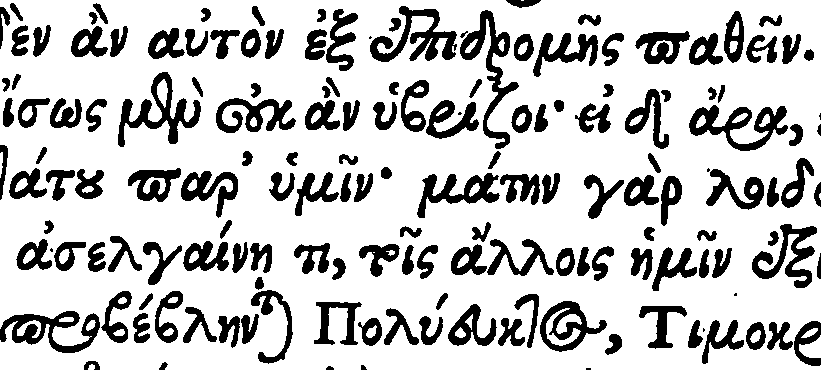 δὲν ἂν αὐτὸν ἐξ ἐπιδρομῆς παθεῖν.
ἴσως μὲν οὐκ ἂν ὑβρίζοι· εἰ δ' ἄρα,
άτου παρ' ὑμῖν· μάτην γὰρ λοιδο
ἀσελγαίνῃ τι, τοῖς ἄλλοις ἡμῖν ἐξ
προβέβληνται Πολύευκτος, Τιμοκρ